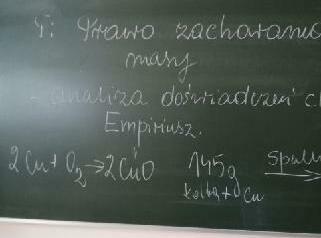 T: Prawo zachowania
masy
- analiza doświadczeń
Empiriusz.
2Cu + O₂ → 2CuO 145g
kolba + Cu